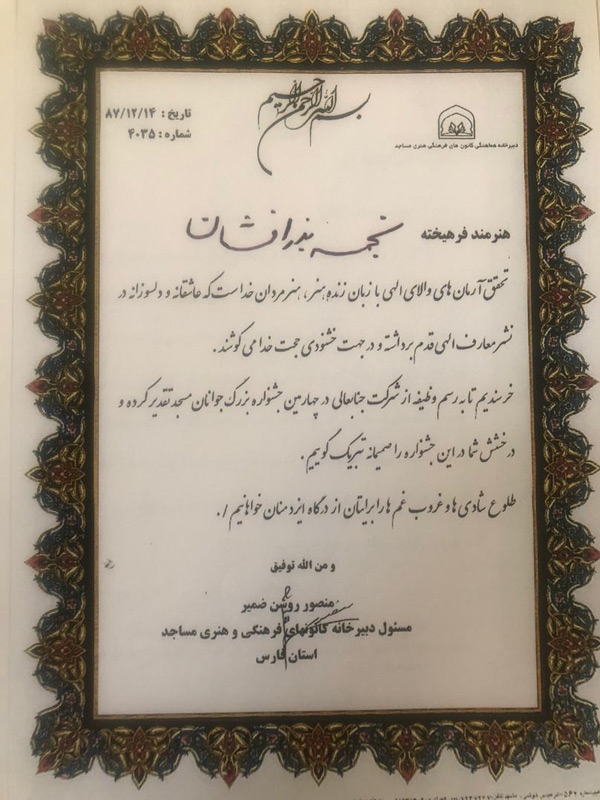 بسم الله الرحمن الرحیم
تاریخ : ۸۷/۱۲/۱۴
شماره : ۴۰۳۵
دبیرخانه هماهنگی کانون های فرهنگی هنری مساجد
هنرمند فرهیخته نجمه بذرافشان
تحقق آرمان های والای الهی با زبان زنده هنر ، هنر مردان خداست که عاشقانه و دلسوزانه در
نشر معارف الهی قدم برداشته و در جهت خشنودی حجت خدا می کوشند .
خرسندیم تا به رسم وظیفه از شرکت جنابعالی در چهارمین جشنواره بزرگ جوانان مسجد تقدیر کرده و
درخشش شما در این جشنواره را صمیمانه تبریک گوییم .
طلوع شادی ها و غروب غم ها را برایتان از درگاه ایزد منان خواهانیم /.
و من الله توفیق
منصور روشن ضمیر
مسئول دبیرخانه کانونهای فرهنگی و هنری مساجد
استان فارس